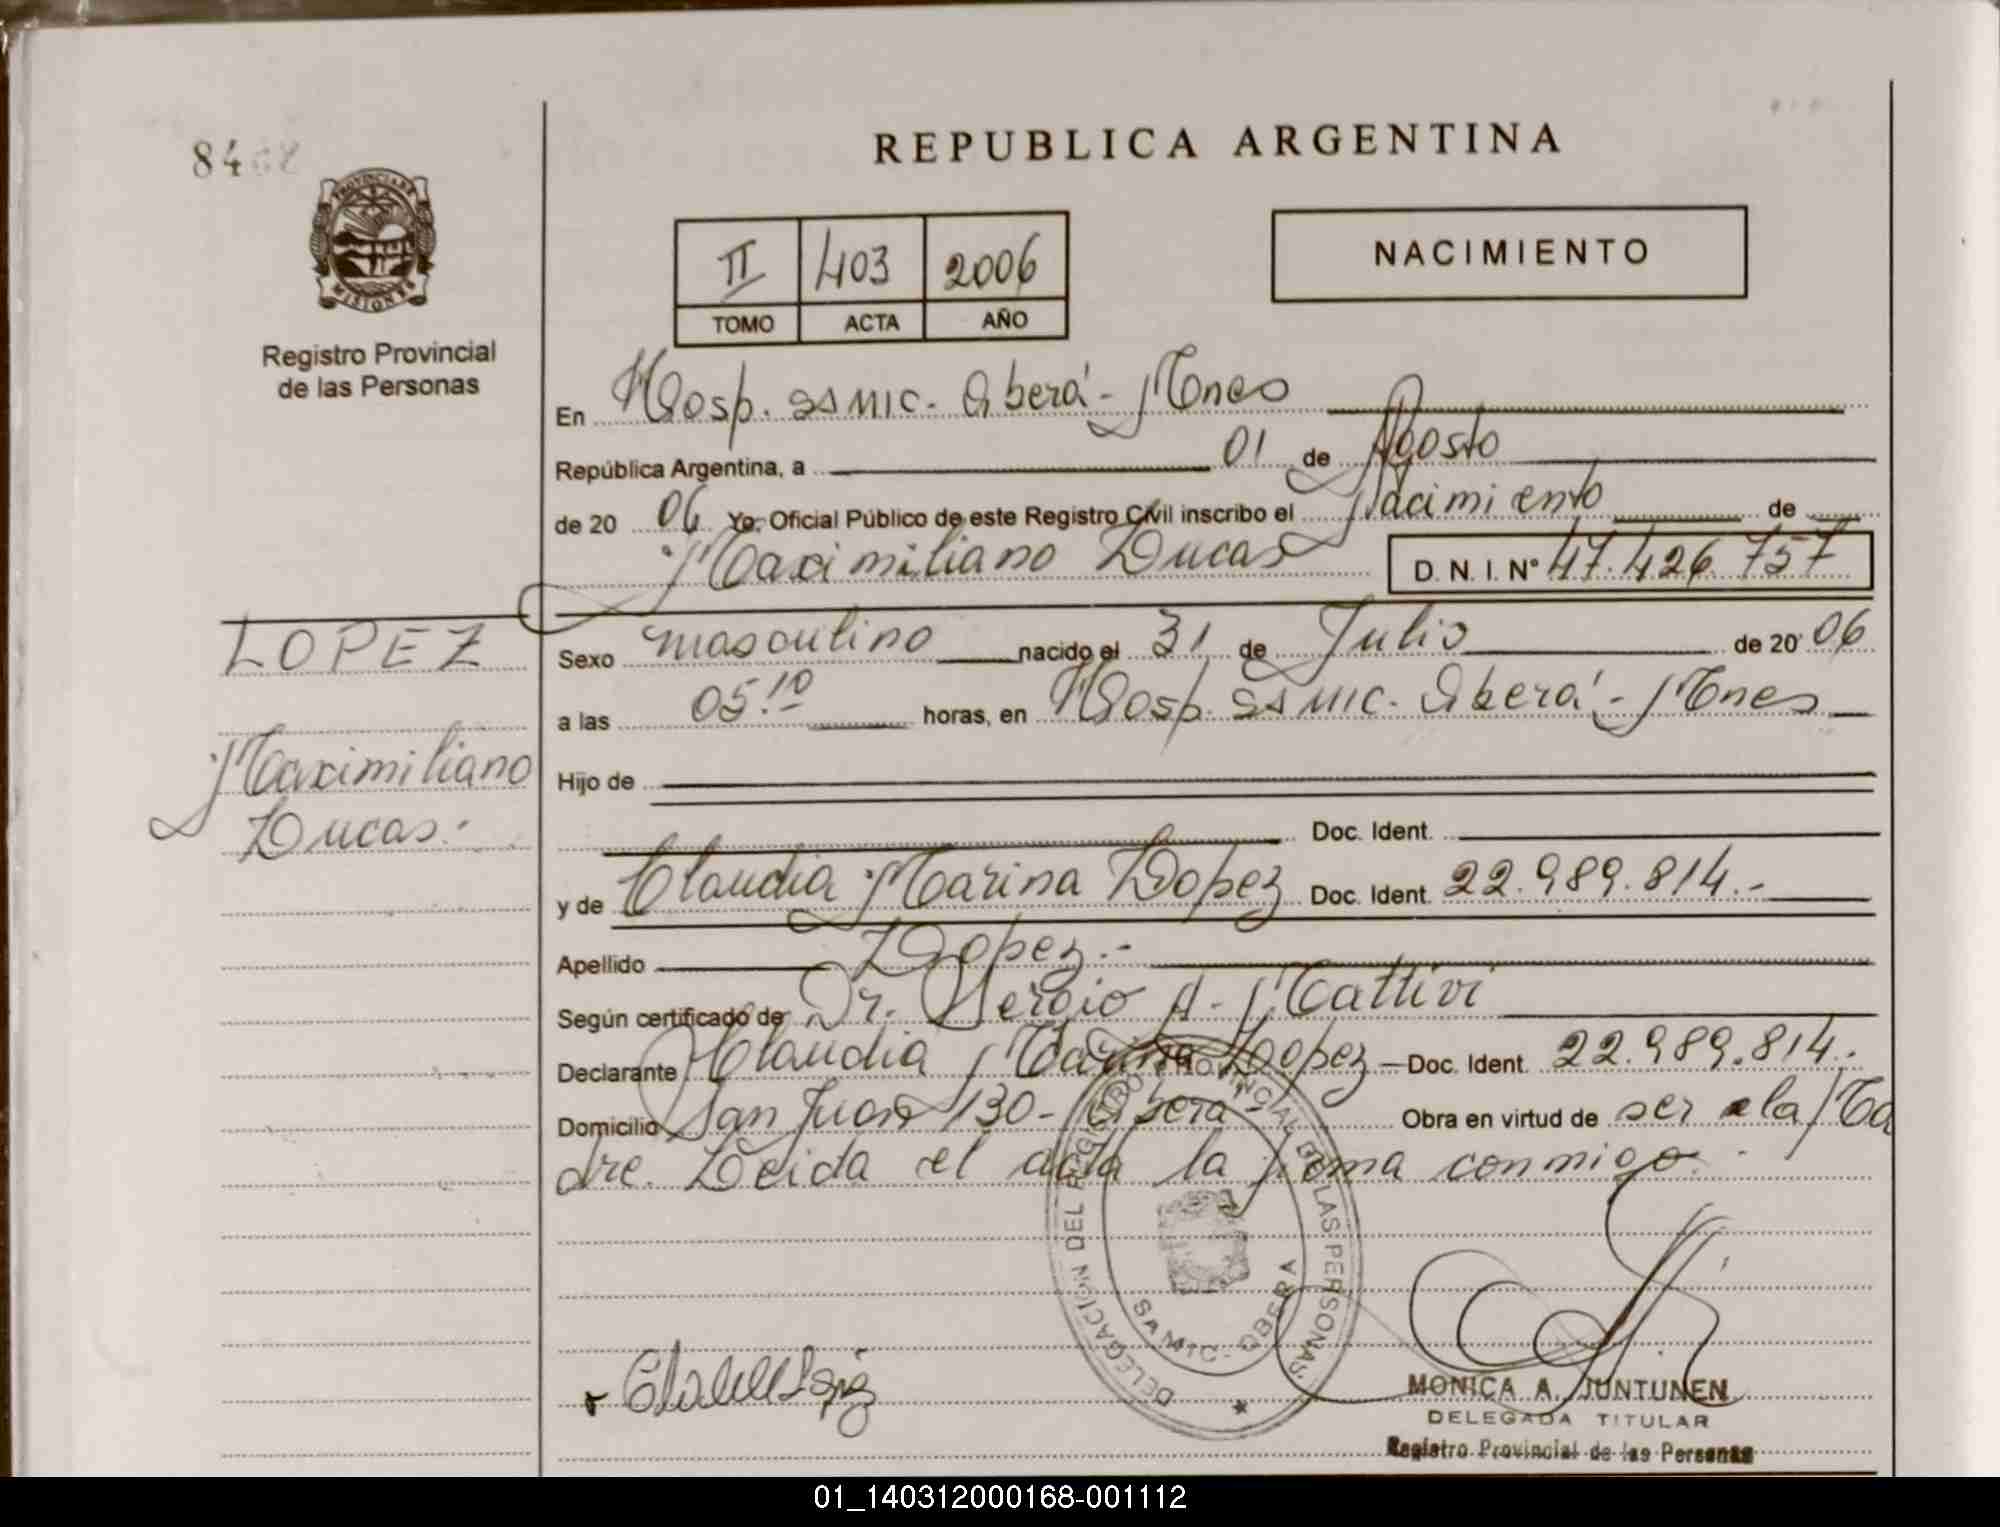 84
PROVINCIA DE
MISIONES
Registro Provincial
de las Personas
REPUBLICA ARGENTINA
II 403 2006
TOMO ACTA AÑO
NACIMIENTO
En Hosp. SAMIC. Oberá - Mnes
República Argentina, a 01 de Agosto
de 20 06 Yo, Oficial Público de este Registro Civil inscribo el Nacimiento de
Maximiliano Lucas D. N. I. N° 47.426.757
LOPEZ
Maximiliano
Lucas.
Sexo masculino nacido el 31 de Julio de 20 06
a las 05:10 horas, en Hosp. SAMIC. Oberá - Mnes
Hijo de
Doc. Ident.
y de Claudia Marina Lopez Doc. Ident. 22.989.814.-
Apellido Lopez.-
Según certificado de Dr. Sergio A. Mattivi
Declarante Claudia Marina Lopez - Doc. Ident. 22.989.814.
Domicilio San Juan 130 - Oberá - Obra en virtud de ser la Ma
dre. Leida el acta la firma conmigo.-
DELEGACIÓN DEL REGISTRO PROVINCIAL DE LAS PERSONAS
SAMIC - OBERA
MONICA A. JUNTUNEN
DELEGADA TITULAR
Registro Provincial de las Personas
01_140312000168-001112